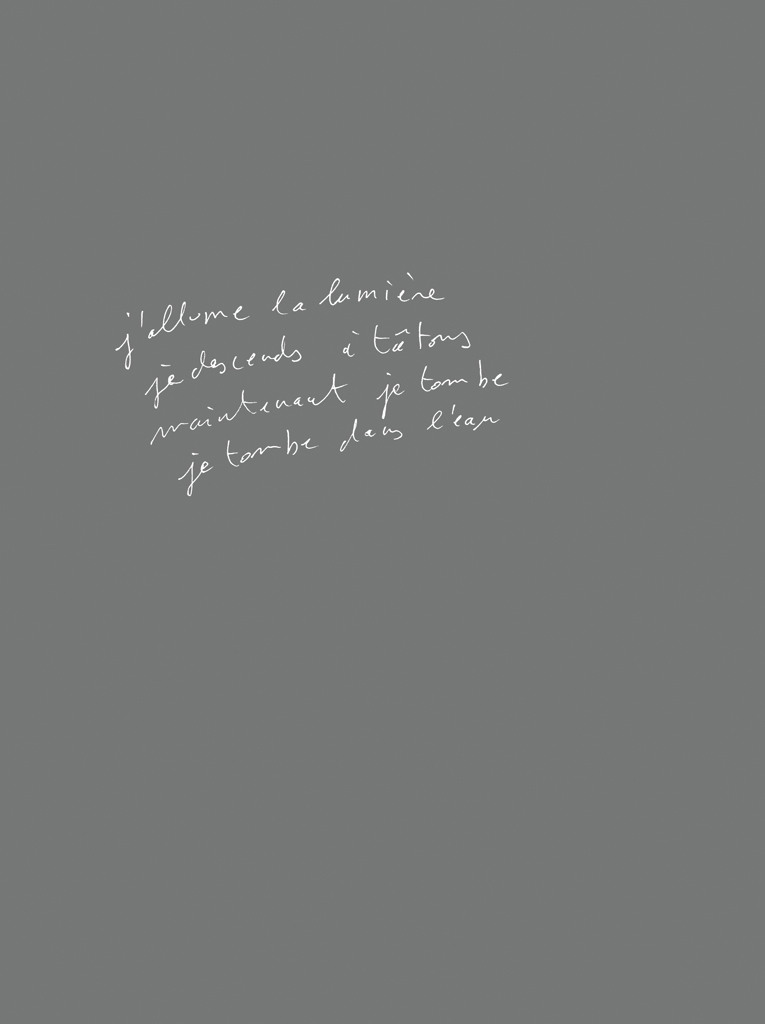 j'allume la lumière
je descends à tâtons
maintenant je tombe
je tombe dans l'eau